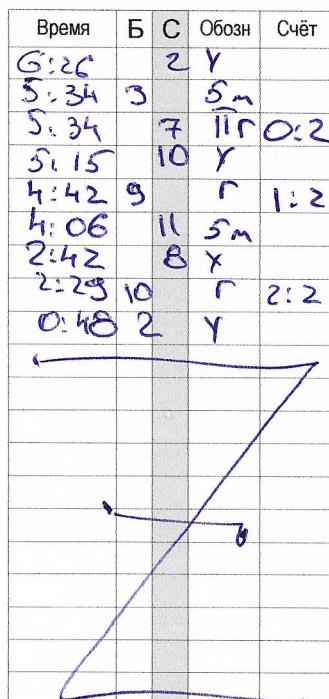 Время Б С Обозн Счёт
6:26 2 У
5:34 3 5м
5:34 7 ПГ 0:2
5:15 10 У
4:42 9 Г 1:2
4:06 11 5м
2:42 8 У
2:29 10 Г 2:2
0:48 2 У